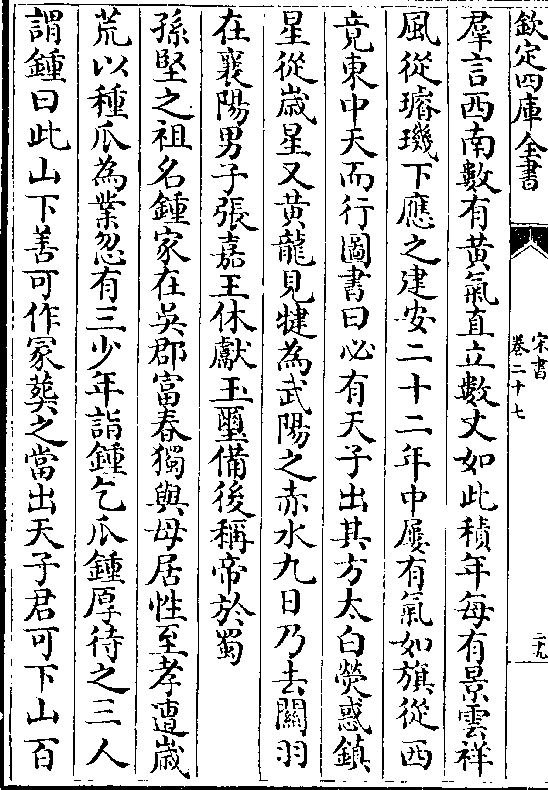 欽定四庫全書
宋書
卷二十七
二九
羣言西南數有黃氣直立數丈如此積年每有景雲祥
風從璿璣下應之建安二十二年中屢有氣如旗從西
竟東中天而行圖書曰必有天子出其方太白熒惑鎮
星從歲星又黃龍見犍為武陽之赤水九日乃去關羽
在襄陽男子張嘉王休獻玉璽備後稱帝於蜀
孫堅之祖名鍾家在吳郡富春獨與母居性至孝遭歲
荒以種瓜為業忽有三少年詣鍾乞瓜鍾厚待之三人
謂鍾曰此山下善可作冢葬之當出天子君可下山百